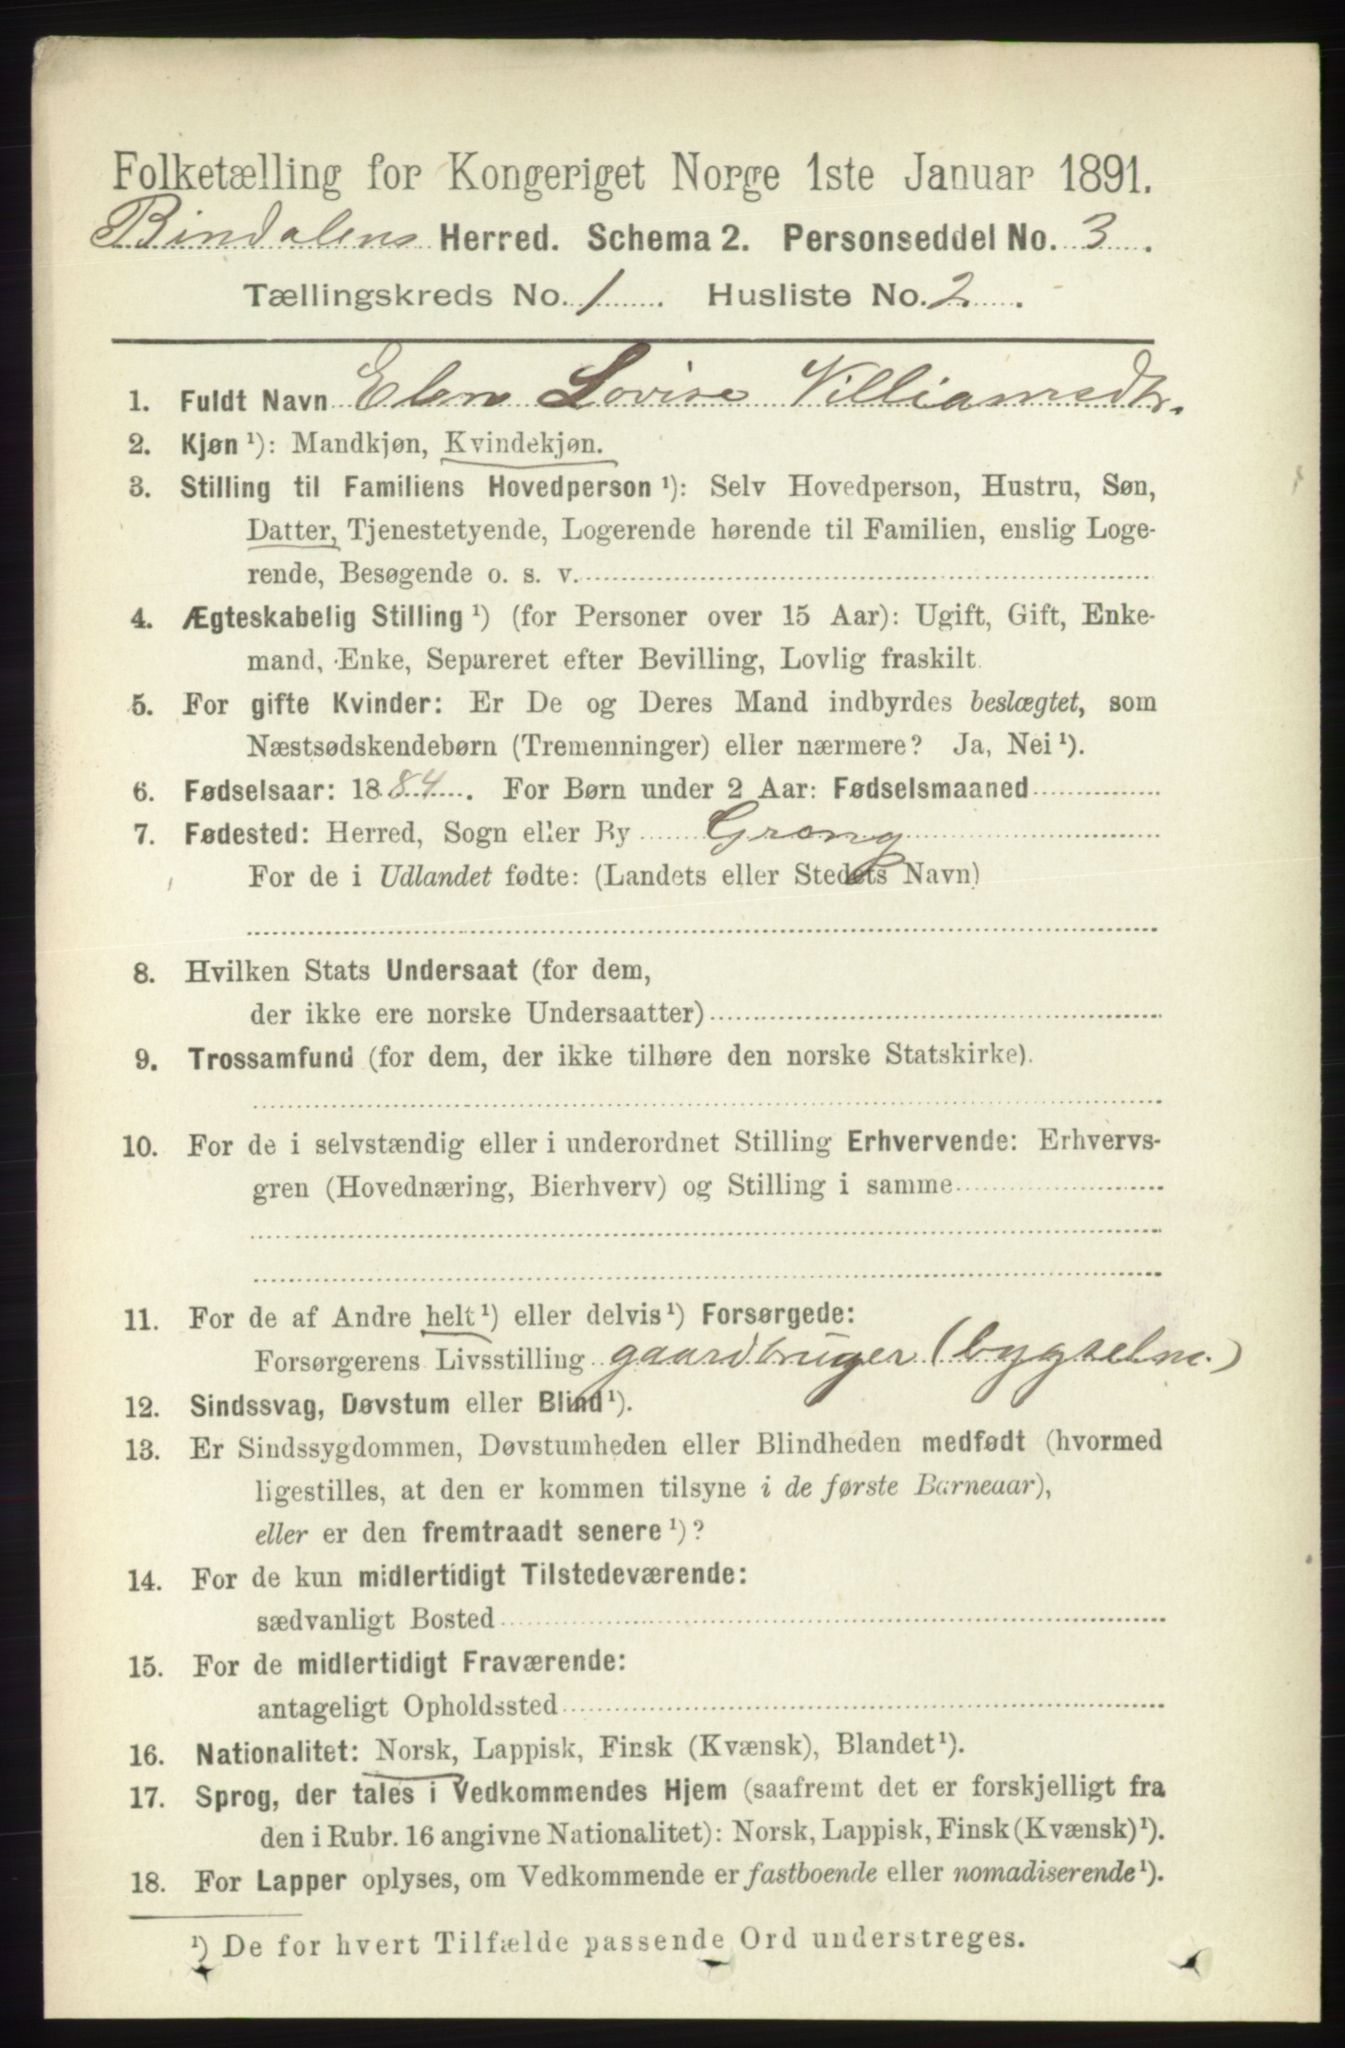 Folketælling for Kongeriget Norge 1ste Januar 1891.
Bindalens Herred. Schema 2. Personseddel No. 3.
Tællingskreds No. 1. Husliste No. 2.
1. Fuldt Navn Elen Lovise Villiamsdtr.
2. Kjøn¹): Mandkjøn, Kvindekjøn.
3. Stilling til Familiens Hovedperson¹): Selv Hovedperson, Hustru, Søn,
Datter, Tjenestetyende, Logerende hørende til Familien, enslig Loge-
rende, Besøgende o. s. v.
4. Ægteskabelig Stilling¹) (for Personer over 15 Aar): Ugift, Gift, Enke-
mand, Enke, Separeret efter Bevilling, Lovlig fraskilt.
5. For gifte Kvinder: Er De og Deres Mand indbyrdes beslægtet, som
Næstsødskendebørn (Tremenninger) eller nærmere? Ja, Nei¹).
6. Fødselsaar: 1884. For Børn under 2 Aar: Fødselsmaaned
7. Fødested: Herred, Sogn eller By Grong
For de i Udlandet fødte: (Landets eller Stedets Navn)
8. Hvilken Stats Undersaat (for dem,
der ikke ere norske Undersaatter)
9. Trossamfund (for dem, der ikke tilhøre den norske Statskirke).
10. For de i selvstændig eller i underordnet Stilling Erhvervende: Erhvervs-
gren (Hovednæring, Bierhverv) og Stilling i samme
11. For de af Andre helt¹) eller delvis¹) Forsørgede:
Forsørgerens Livsstilling gaardbruger (bygselm.)
12. Sindssvag, Døvstum eller Blind¹).
13. Er Sindssygdommen, Døvstumheden eller Blindheden medfødt (hvormed
ligestilles, at den er kommen tilsyne i de første Barneaar),
eller er den fremtraadt senere¹)?
14. For de kun midlertidigt Tilstedeværende:
sædvanligt Bosted
15. For de midlertidigt Fraværende:
antageligt Opholdssted
16. Nationalitet: Norsk, Lappisk, Finsk (Kvænsk), Blandet¹).
17. Sprog, der tales i Vedkommendes Hjem (saafremt det er forskjelligt fra
den i Rubr. 16 angivne Nationalitet): Norsk, Lappisk, Finsk (Kvænsk)¹).
18. For Lapper oplyses, om Vedkommende er fastboende eller nomadiserende¹).
¹) De for hvert Tilfælde passende Ord understreges.